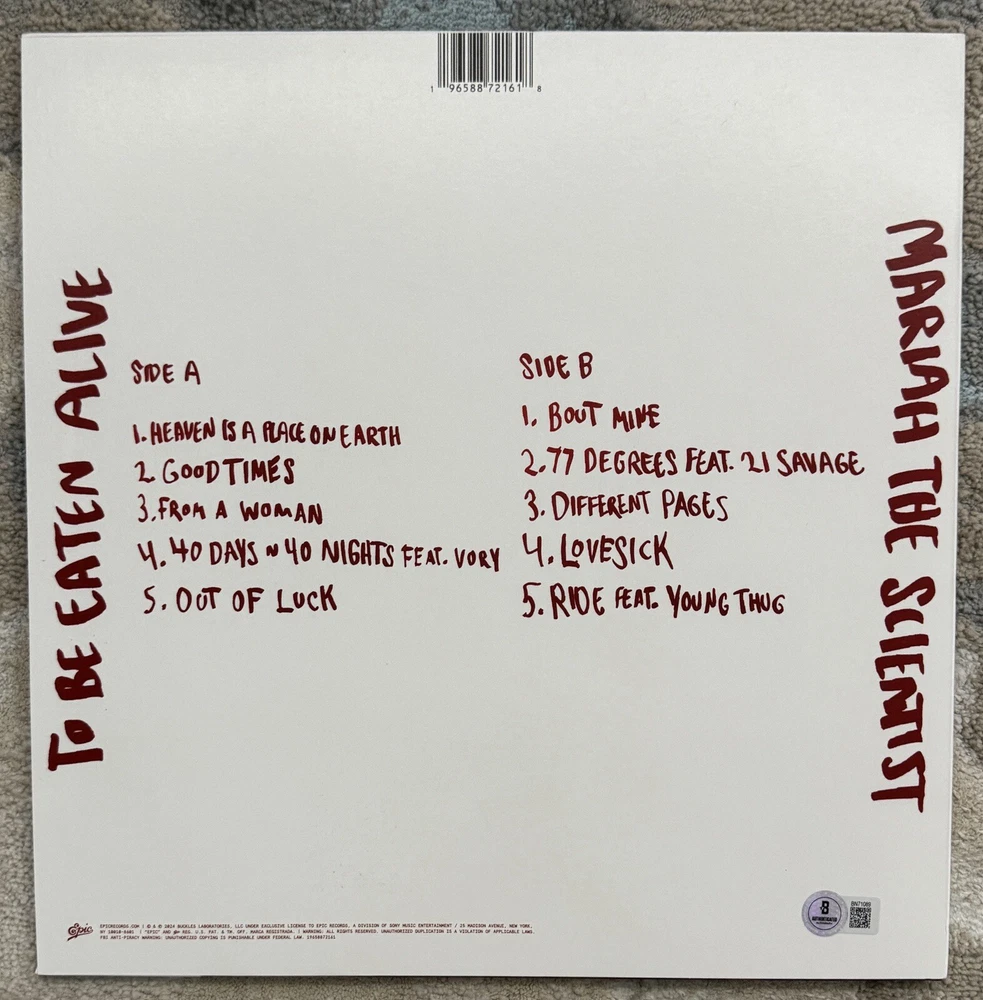 1 96588 72161 8
TO BE EATEN ALIVE
SIDE A
1. HEAVEN IS A PLACE ON EARTH
2. GOOD TIMES
3. FROM A WOMAN
4. 40 DAYS N 40 NIGHTS FEAT. VORY
5. OUT OF LUCK
SIDE B
1. BOUT MINE
2. 77 DEGREES FEAT. 21 SAVAGE
3. DIFFERENT PAGES
4. LOVESICK
5. RIDE FEAT. YOUNG THUG
MARIAH THE SCIENTIST
Epic
EPICRECORDS.COM | ℗ & © 2024 BUCKLES LABORATORIES, LLC UNDER EXCLUSIVE LICENSE TO EPIC RECORDS, A DIVISION OF SONY MUSIC ENTERTAINMENT / 25 MADISON AVENUE, NEW YORK,
NY 10010-8601 | "EPIC" AND REG. U.S. PAT. & TM. OFF. MARCA REGISTRADA. | WARNING: ALL RIGHTS RESERVED. UNAUTHORIZED DUPLICATION IS A VIOLATION OF APPLICABLE LAWS.
FBI ANTI-PIRACY WARNING: UNAUTHORIZED COPYING IS PUNISHABLE UNDER FEDERAL LAW. 19658872161
B
BN71089